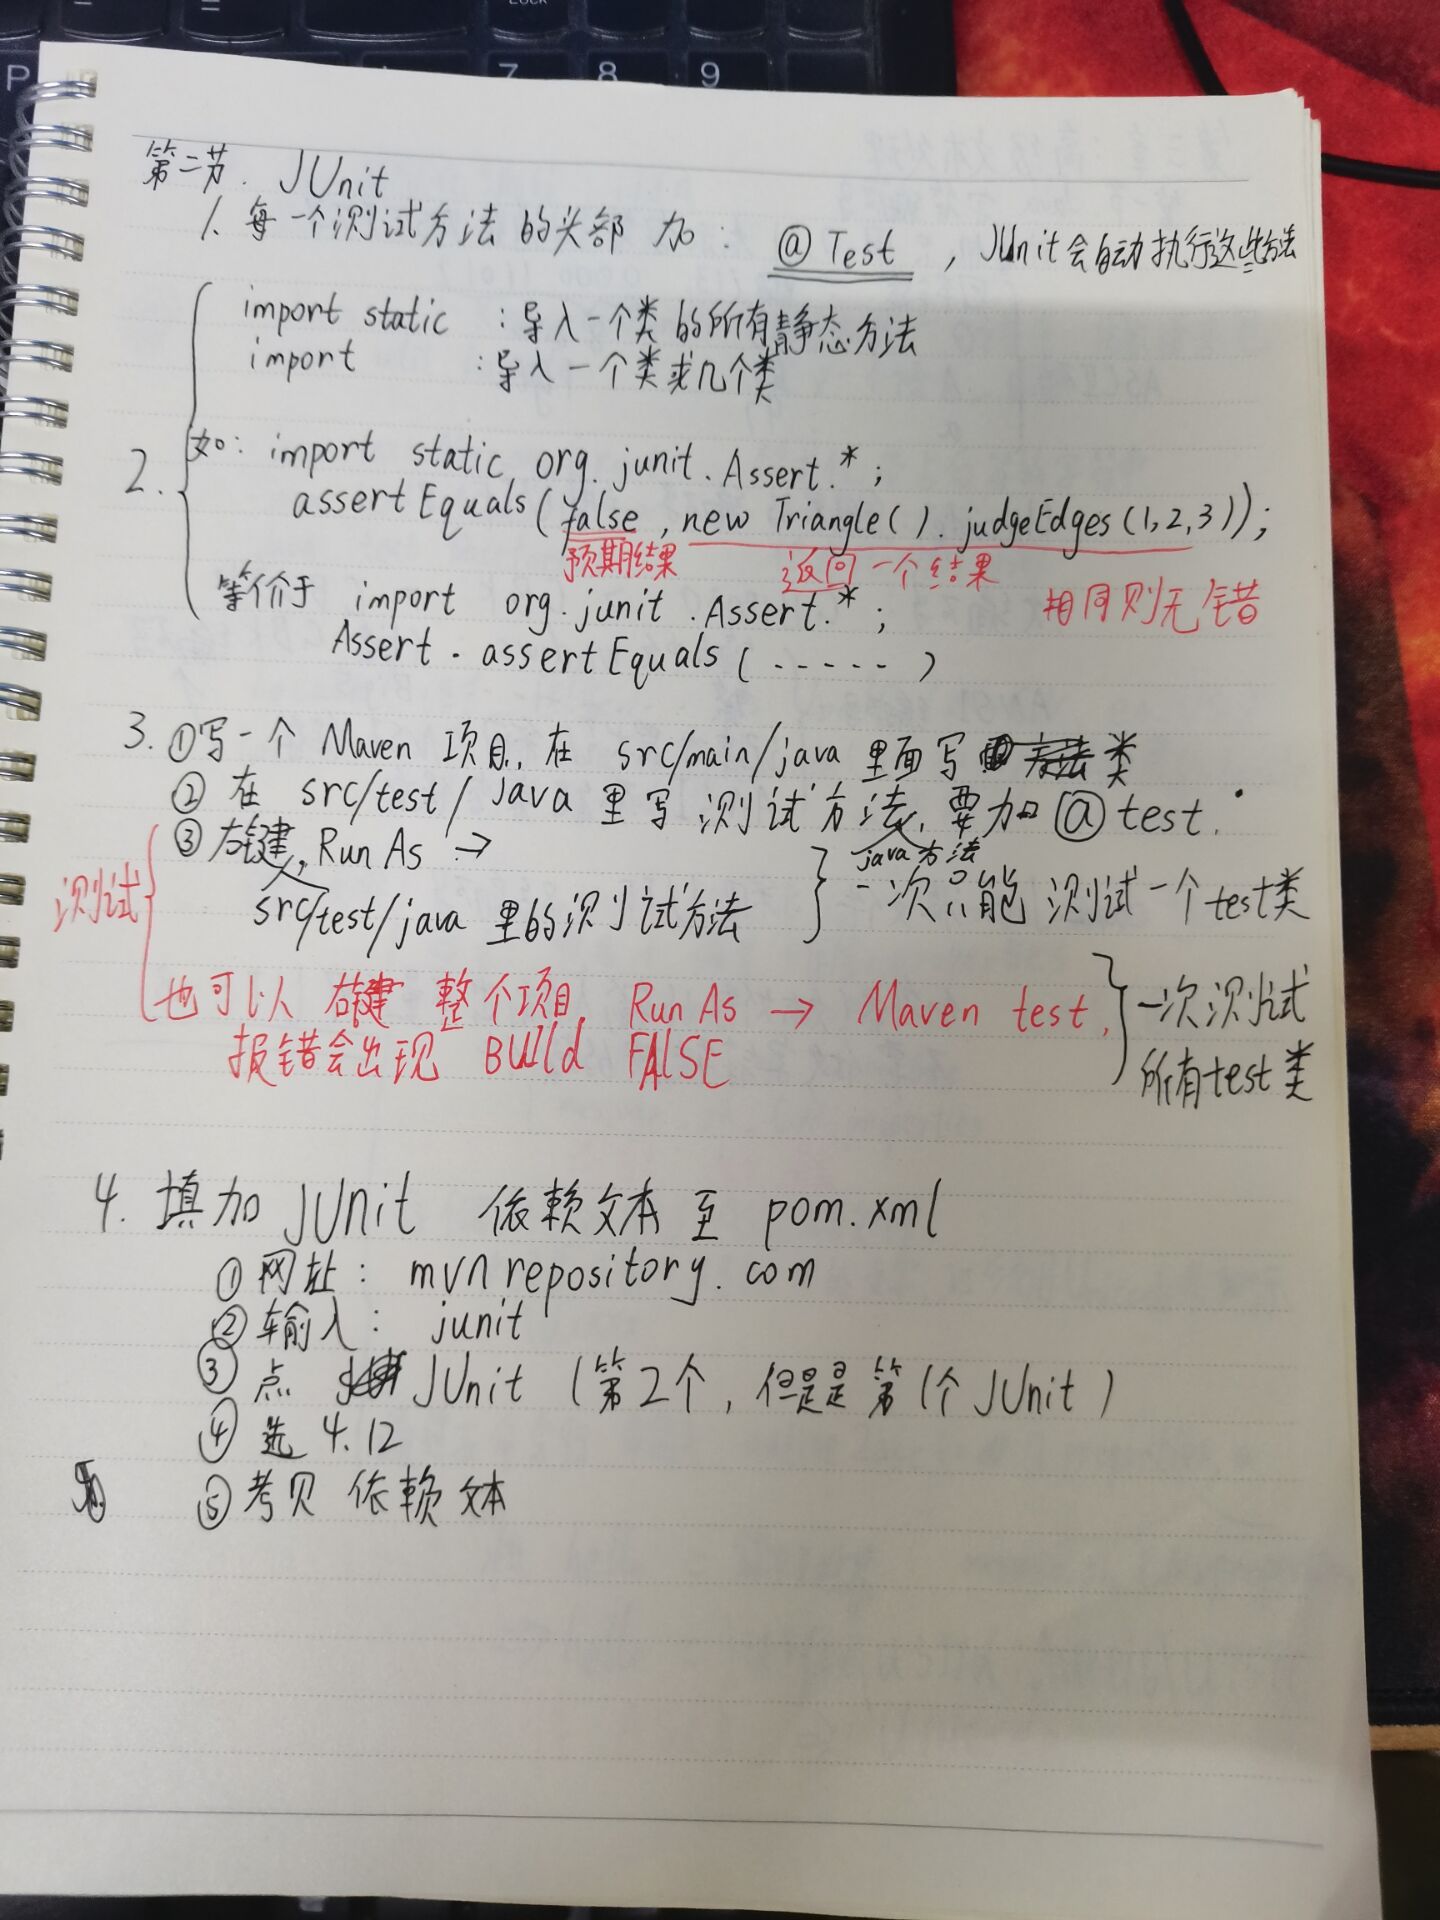 第二节. JUnit
1. 每一个测试方法的头部 加: @Test , JUnit会自动执行这些方法
import static : 导入一个类的所有静态方法
import : 导入一个类或几个类
2. 如: import static org.junit.Assert.*;
assertEquals(false, new Triangle().judgeEdges(1,2,3));
预期结果 返回一个结果 相同则无错
等价于 import org.junit.Assert.*;
Assert.assertEquals(-----)
3. ①写一个 Maven 项目, 在 src/main/java 里面写 类
②在 src/test/java 里写 测试方法, 要加 @test.
java方法
③右键, Run As →
src/test/java 里的测试方法
一次只能 测试一个test类
测试
也可以 右键 整个项目, Run As → Maven test,
报错会出现 BUILd FAlSE
一次测试
所有test类
4. 填加 JUnit 依赖文本至 pom.xml
①网址: mvnrepository.com
②输入: junit
③点 JUnit (第2个, 但是是第1个JUnit)
④选 4.12
⑤考贝 依赖文本
P
7 8 9
LOCK